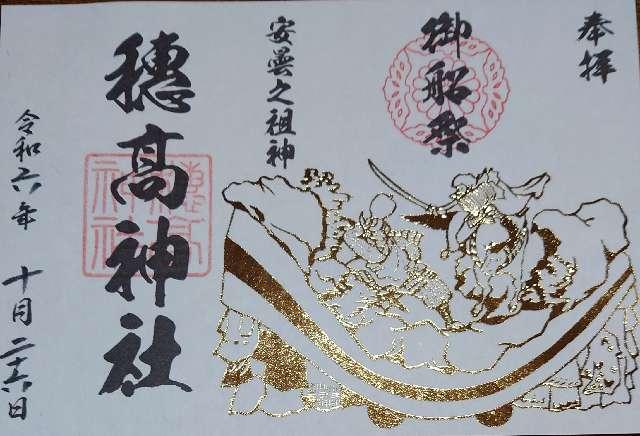 奉拝
御船祭
安曇之祖神
穂高神社
令和六年 十月二十六日